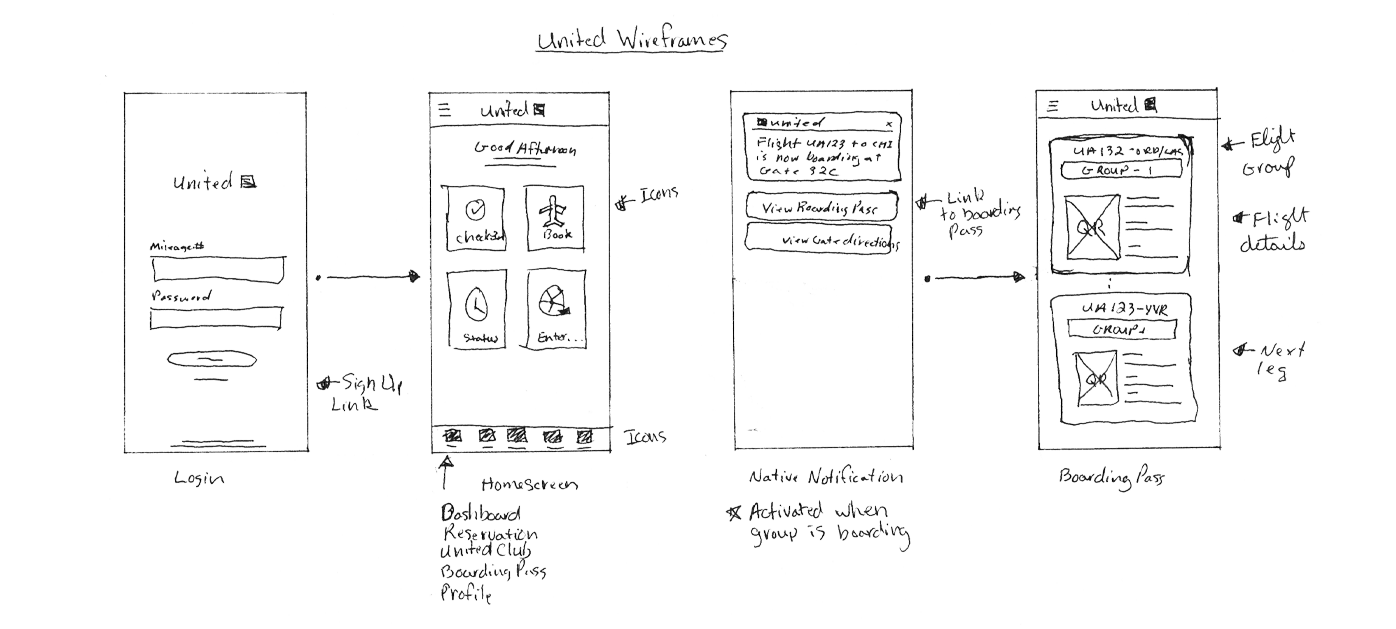 United Wireframes
United
Mileage#
Password
Sign Up
Link
Login
United
Good Afternoon
Check In
Book
Status
Enter...
Icons
Icons
HomeScreen
Dashboard
Reservation
United Club
Boarding Pass
Profile
united
x
Flight UA123 to CMI
is now boarding at
Gate 32C
View Boarding Pass
View Gate directions
Link
to boarding
Pass
Native Notification
Activated when
group is boarding
United
UA132-ORD/LAS
GROUP-1
QR
UA123-YVR
GROUP1
QR
Flight
Group
Flight
details
Next
leg
Boarding Pass